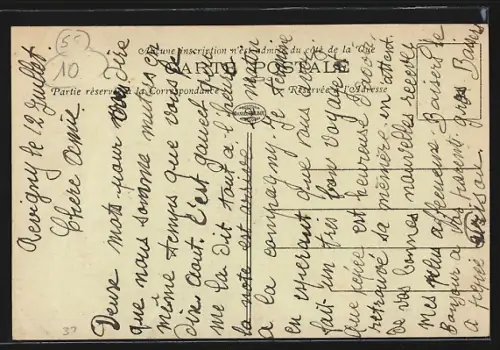 55
10
Aucune inscription n'est admise du côté de la Vue
CARTE POSTALE
Partie réservée à la Correspondance
A Réservée à l'Adresse
Revigny le 12 Juillet.
Chère Amie
Deux mots pour vous dire
que nous somme mutés en
même temps que vous le
Dix Aout. C'est gaucet qui
me la dit tout à l'heure
la note est arrivée matin
a la compagny. Je termine
en espérant que vous avez
fait un tres bon voyage
Que renée est heureuse d'avoir
retrouvé sa mémère en attent.
De vos bonnes nouvelles recevez
Mes plus affectueux Baisers le
Bonjour a vos parent. gros Baisers
a renée